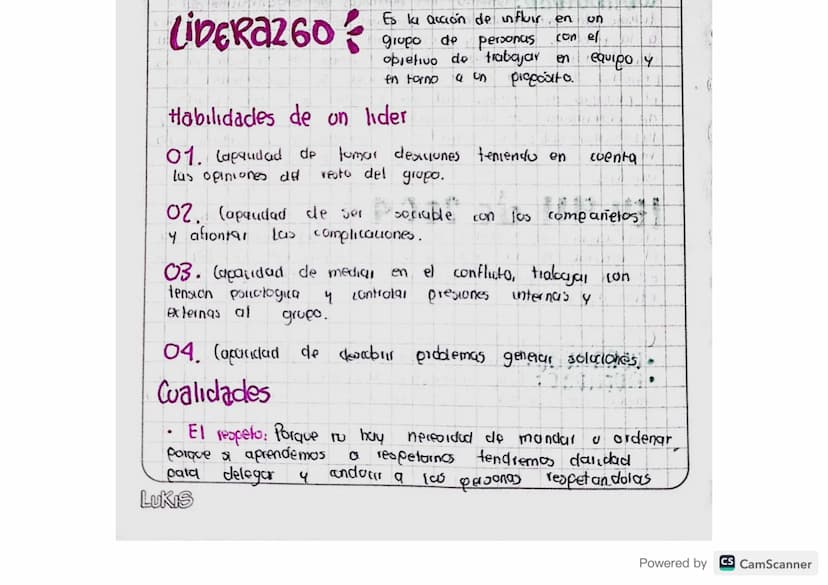 LIDERAZGO
Es la acción de influir en un
grupo de personas con el
objetivo de trabajar en equipo y
en torno a un propósito.
Habilidades de un lider
01. Capacidad de tomar desiciones teniendo en cuenta
las opiniones del resto del grupo.
02. Capacidad de ser sociable con los compañeros
y afrontar las complicaciones.
03. Capacidad de mediar en el conflicto, trabajar con
tension psicologica y controlar presiones internas y
externas al grupo.
04. Capacidad de descubrir problemas generar soluciones.
Cualidades
• El respeto: Porque no hay necesidad de mandar u ordenar,
porque si aprendemos a respetarnos tendremos claridad
para delegar y a las personas respetandolas
LUKIS
Powered by CS CamScanner